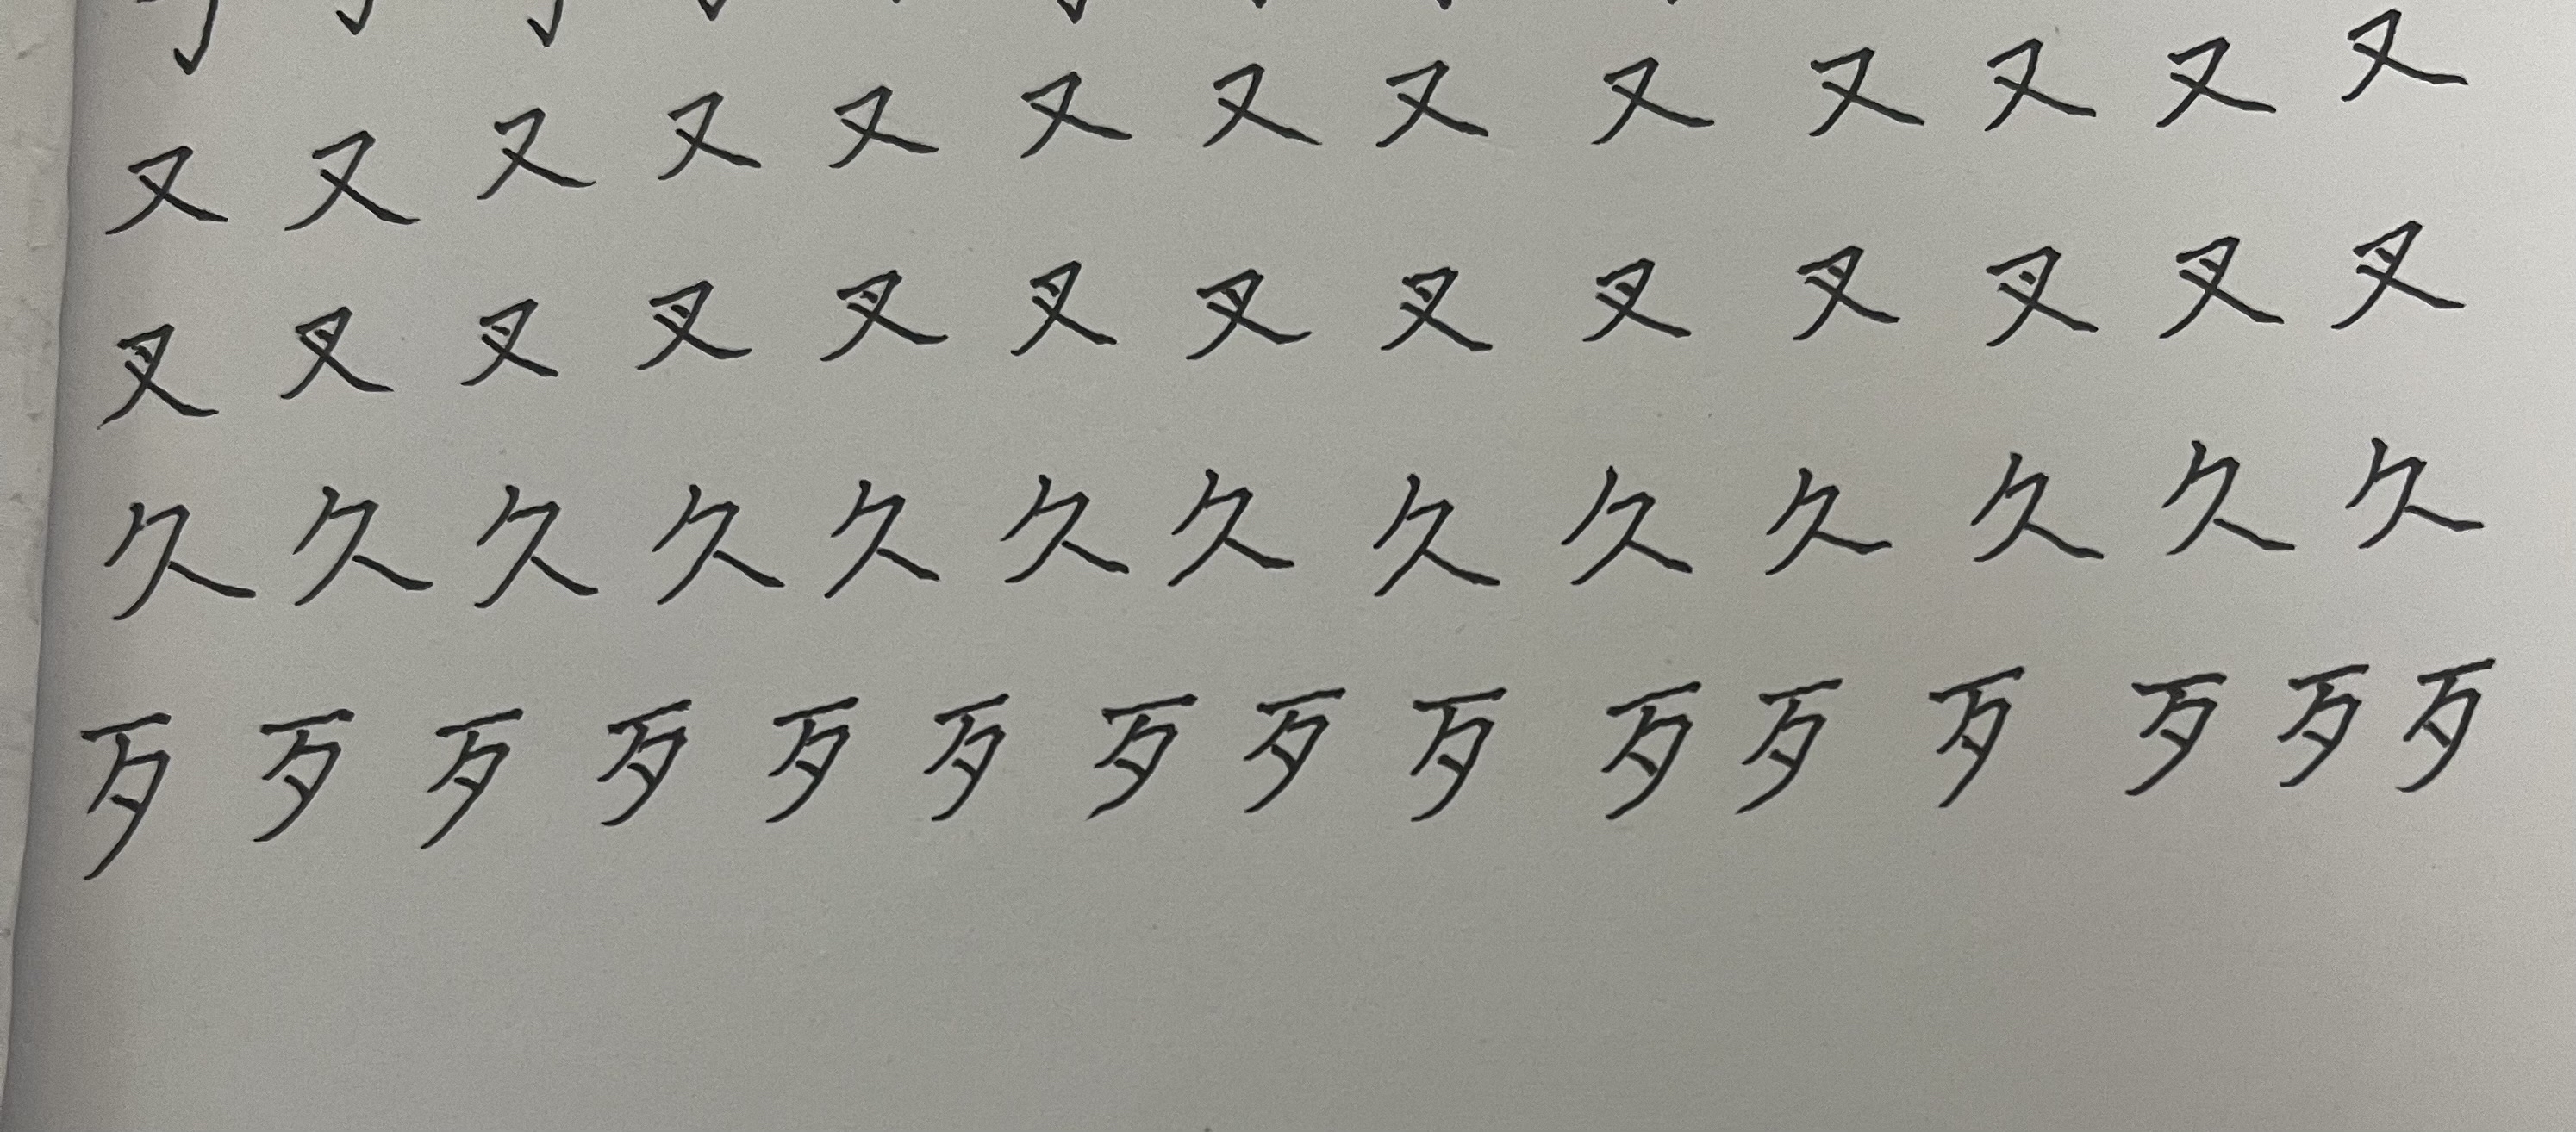 又又又又又又又又又又又又又
叉叉叉叉叉叉叉叉叉叉叉叉叉
久久久久久久久久久久久久久
歹歹歹歹歹歹歹歹歹歹歹歹歹歹歹